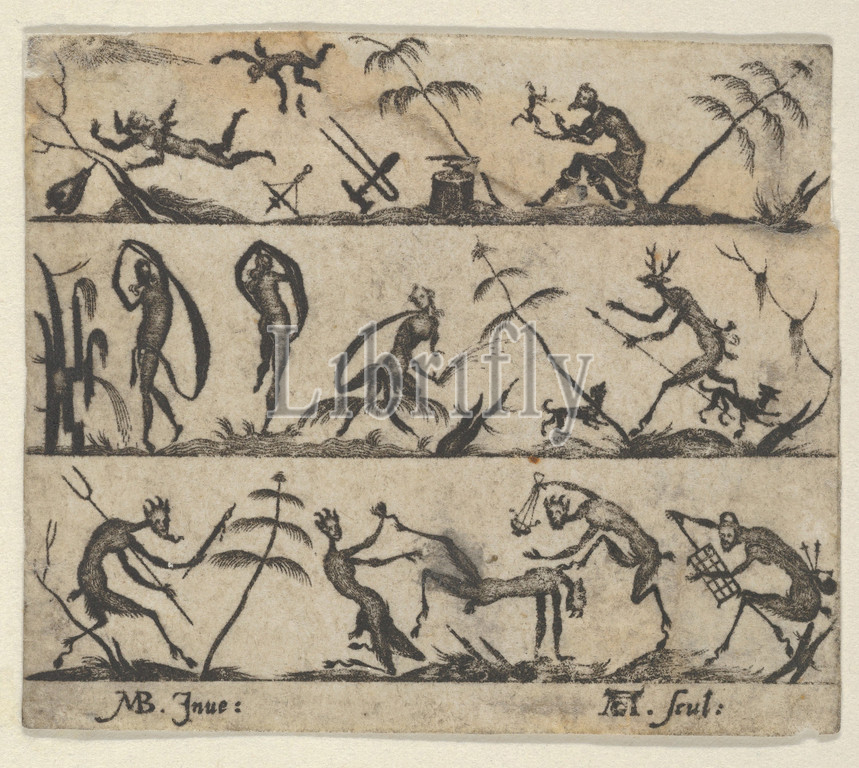 Librifly
MB. Inue:
AH. Scul: